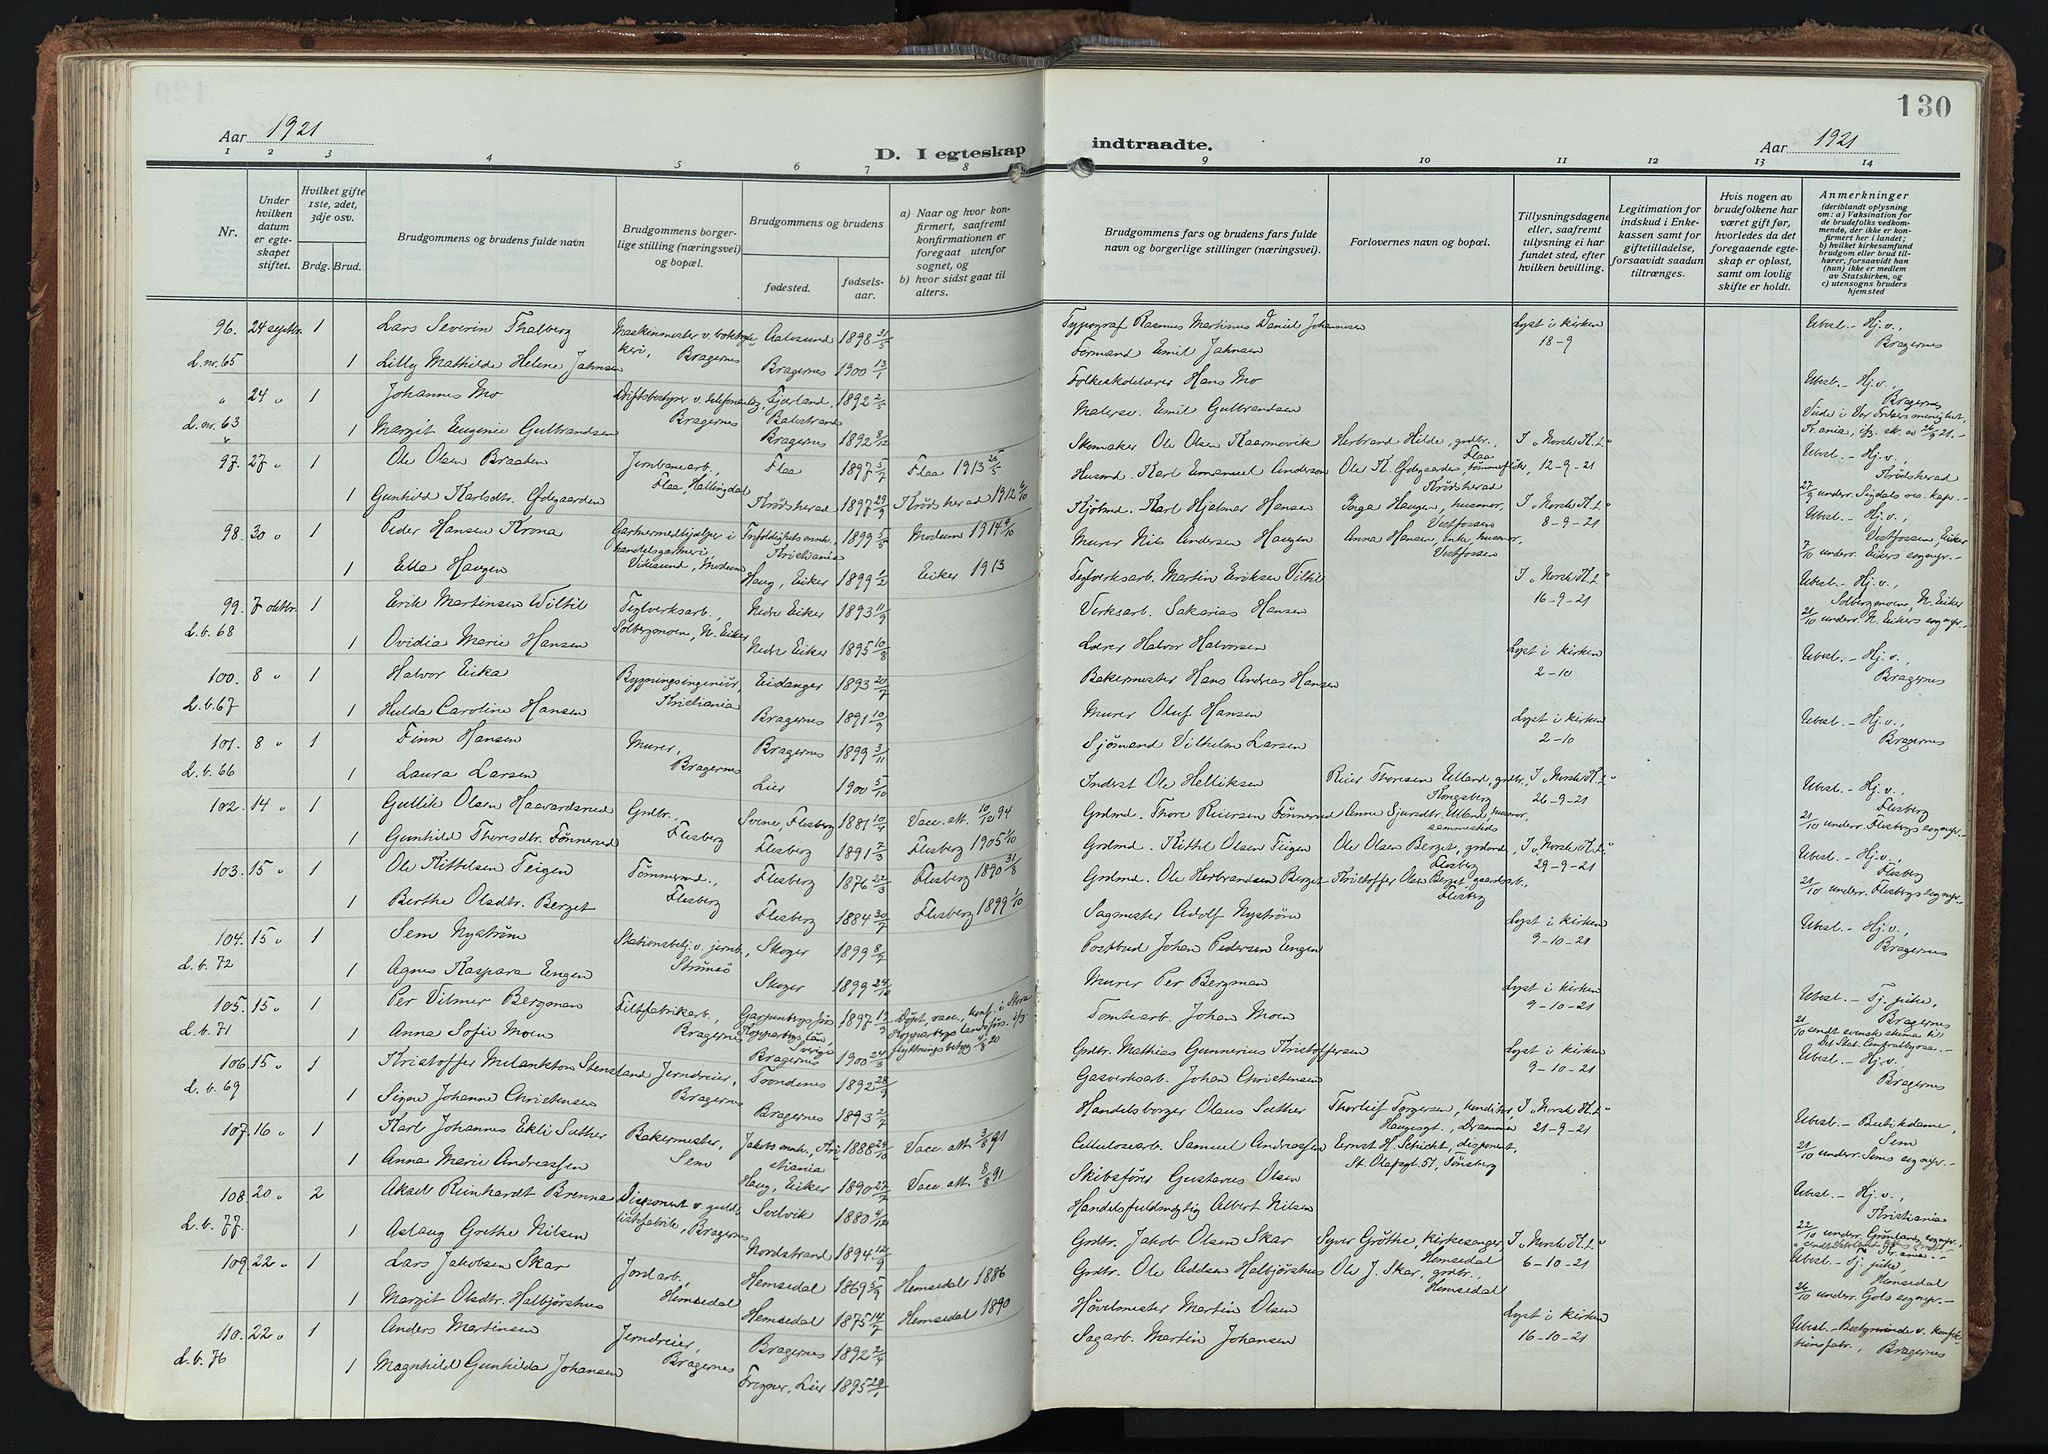 130
Aar 1921
D. I egteskap indtraadte.
Aar 1921
1 2 3 4 5 6 7 8 9 10 11 12 13 14
Nr.
Under hvilken datum er egteskapet stiftet.
Hvilket gifte 1ste, 2det, 3dje osv.
Brdg. Brud.
Brudgommens og brudens fulde navn
Brudgommens borgerlige stilling (næringsvei) og bopæl.
Brudgommens og brudens
fødested.
fødselsaar.
a) Naar og hvor konfirmert, saafremt konfirmationen er foregaat utenfor sognet, og
b) hvor sidst gaat til alters.
Brudgommens fars og brudens fars fulde navn og borgerlige stillinger (næringsvei).
Forlovernes navn og bopæl.
Tillysningsdagene eller, saafremt tillysning ei har fundet sted, efter hvilken bevilling.
Legitimation for indskud i Enkekassen samt for giftetilladelse, forsaavidt saadan tiltrænges.
Hvis nogen av brudefolkene har været gift før, hvorledes da det foregaaende egteskap er opløst, samt om lovlig skifte er holdt.
Anmerkninger (deriblandt oplysning om: a) Vaksination for de brudefolks vedkommende, der ikke er konfirmert her i landet; b) hvilket kirkesamfund brudgom eller brud tilhører, forsaavidt han (hun) ikke er medlem av Statskirken, og c) utensogns bruders hjemsted
96. 24 septbr. 1 Lars Severin Thalberg Maskinmester v. boktrykkeri, Bragernes Aalesund 1898 31/5 Typograf Rasmus Martinus Daniel Johannesen Lyst i kirken 18-9 Ubesl. - Hj.v., Bragernes
L. nr. 65 1 Lilly Mathilde Helene Jahnsen Bragernes 1900 13/1 Formand Emil Jahnsen
" 24 " 1 Johannes Mo Driftsbestyrer v. telefonanlæg, Bragernes Fjærland, Balestrand 1892 2/5 Folkeskolelærer Hans Mo Ubesl. - Hj.v., Bragernes
L. nr. 63 1 Margit Eugenie Gulbrandsen Bragernes 1892 8/12 Malersv. Emil Gulbrandsen
97. 27 " 1 Ole Olsen Braaten Jernbanearb., Flaa, Hallingdal Flaa 1897 5/7 Flaa 1913 25/5 Skomaker Ole Olsen Kaarmovik Herbrand Hilde, grdbr., Flaa I "Norsk K.t." 12-9-21 Ubesl. - Hj.v., Krødsherad
1 Gunhild Karlsdtr. Ødegaarden Krødsherad 1897 29/9 Krødsherad 1912 6/10 Husmd. Karl Emanuel Anderson Ole K. Ødegaarden, tømmerfløder, Krødsherad 27/9 underr. Sigdals res. kap. -
98. 30 " 1 Peder Hansen Krona Gartnermedhjælper i handelsgartneri, Vikesund, Modum Trefoldighets mnh. Kristiania 1899 5/5 Modum 1914 4/10 Kjøbmd. Karl Hjalmar Hansen Inga Haugen, husmor, Vestfossen I "Norsk K.t." 8-9-21 Ubesl. - Hj.v., Vestfossen, Eiker
1 Ella Haugen Haug, Eiker 1899 1/2 Eiker 1913 Murer Nils Andersen Haugen Anna Hansen, enke, husmor, Vestfossen 7/10 underr. Eikers sognepr. -
99. 7 oktbr. 1 Erik Martinsen Wiltil Teglverksarb., Solbergmoen, N. Eiker Nedre Eiker 1893 11/9 Teglverksarb. Martin Eriksen Viltil I "Norsk K.t." 16-9-21 Ubesl. - Hj.v., Solbergmoen, N. Eiker
L. b. 68 1 Ovidia Marie Hansen Nedre Eiker 1895 10/8 Verksarb. Sakarias Hansen 21/10 underr. N. Eikers sognepr. -
100. 8 " 1 Halvor Eika Bygningsingeniør, Kristiania Eidanger 1893 20/7 Lærer Halvor Halvorsen Lyst i kirken 2-10 Ubesl. - Hj.v., Bragernes
L. b. 67 1 Hulda Caroline Hansen Bragernes 1891 10/9 Bakermester Hans Andreas Hansen
101. 8 " 1 Finn Hansen Murer, Bragernes Bragernes 1899 3/11 Murer Oluf Hansen Lyst i kirken 2-10 Ubesl. - Hj.v., Bragernes
L. b. 66 1 Laura Larsen Lier 1900 5/10 Sjømand Vilhelm Larsen
102. 14 " 1 Gullik Olsen Haavardsrud Grdbr., Flesberg Svene, Flesberg 1881 10/4 Vacc. att. 10/12 94 Inderst Ole Helliksen Reier Thoresen Ulland, grdbr., Kongsberg I "Norsk K.t." 26-9-21 Ubesl. - Hj.v., Flesberg
1 Gunhild Thoresdtr. Tønnerud Flesberg 1891 7/3 Flesberg 1905 1/10 Grdmd. Thore Reiersen Tønnerud Anne Gjursdtr. Ulland, husmor, sammesteds 21/10 underr. Flesbergs sognepr. -
103. 15 " 1 Ole Kittelsen Teigen Tømmermd., Flesberg Flesberg 1876 22/3 Flesberg 1890 31/8 Grdmd. Kittil Olsen Teigen Ole Olsen Berget, grdmd., Flesberg I "Norsk K.t." 29-9-21 Ubesl. - Hj.v., Flesberg
1 Berthe Olsdtr. Berget Flesberg 1884 30/7 Flesberg 1899 1/10 Grdmd. Ole Herbrandsen Berget Kristoffer Olsen Berget, gaardsarb., Flesberg 21/10 underr. Flesbergs sognepr. -
104. 15 " 1 Sem Nystrøm Stationsbetj. v. jernb., Strømsø Skoger 1899 8/7 Sagmester Adolf Nystrøm Lyst i kirken 9-10-21 Ubesl. - Hj.v., Bragernes
L. b. 72 1 Agnes Kaspara Engen Skoger 1899 24/10 Postbud Johan Pedersen Engen
105. 15 " 1 Per Vilmer Bergman Filtfabrikarb., Bragernes Garpenbergs förs. Kopparbergs län, Sverige 1897 13/3 Døpt, vacc., konf. i Stora Kopparbergs landsförs. ifg. flyttningsbetyg 4/8 20 Murer Per Bergman Lyst i kirken 9-10-21 Ubesl. - Tj. pike, Bragernes
L. b. 71 1 Anna Sofie Moen Bragernes 1900 24/3 Tomtearb. Johan Moen 21/10 sendt svensk skema til Det Stat. Centralbyraa. -
106. 15 " 1 Kristoffer Melankton Stensland Jerndreier, Bragernes Trondenes 1892 28/9 Grdbr. Mathias Gunnerius Kristoffersen Lyst i kirken 9-10-21 Ubesl. - Hj.v., Bragernes
L. b. 69 1 Signe Johanne Christensen Bragernes 1893 2/7 Gasverksarb. Johan Christensen
107. 16 " 1 Karl Johannes Ekli Sæther Bakermester, Sem Jakobs mnh., Kristiania 1888 29/10 Vacc. att. 3/8 91 Handelsborger Olaus Sæther Thorleif Torgersen, konditor, Haugesgt., Drammen I "Norsk K.t." 21-9-21 Ubesl. - Butikdame, Sem
1 Anna Marie Andreassen Haug, Eiker 1890 27/7 Vacc. att. 8/8 91 Cellulosearb. Samuel Andreassen Ernst H. Schicht, disponent, St. Olafsgt. 51, Tønsberg 21/10 underr. Sems sognepr. -
108. 20 " 2 Aksel Reinhardt Brenna Disponent v. guldlistefabrik, Bragernes Svelvik 1880 4/12 Skibsfører Gustavus Olsen Ubesl. - Hj.v., Kristiania
L. b. 77 1 Aslaug Grethe Nilsen Nordstrand 1894 12/9 Handelsfuldmegtig Albert Nilsen 22/10 underr. Grønlands sognepr.
109. 22 " 1 Lars Jakobsen Skar Jordarb., Hemsedal Hemsedal 1869 5/9 Hemsedal 1886 Grdbr. Jakob Olsen Skar Syver Grøthe, kirkesanger, Hemsedal I "Norsk K.t." 6-10-21 Ubesl. - Tj. pike, Hemsedal
1 Margit Olsdtr. Halbjørshus Hemsedal 1875 14/7 Hemsedal 1890 Grdbr. Ole Oddsen Halbjørshus Ole J. Skar, grdbr., Hemsedal 26/10 underr. Gols sognepr. -
110. 22 " 1 Anders Martinsen Jerndreier, Bragernes Bragernes 1892 2/4 Høvelmester Martin Olsen Lyst i kirken 16-10-21 Ubesl. - Bestyrerinde v. konfektionsfabr., Bragernes
L. b. 76 1 Magnhild Gunhilda Johansen Frogner, Lier 1895 28/1 Sagarb. Martin Johansen